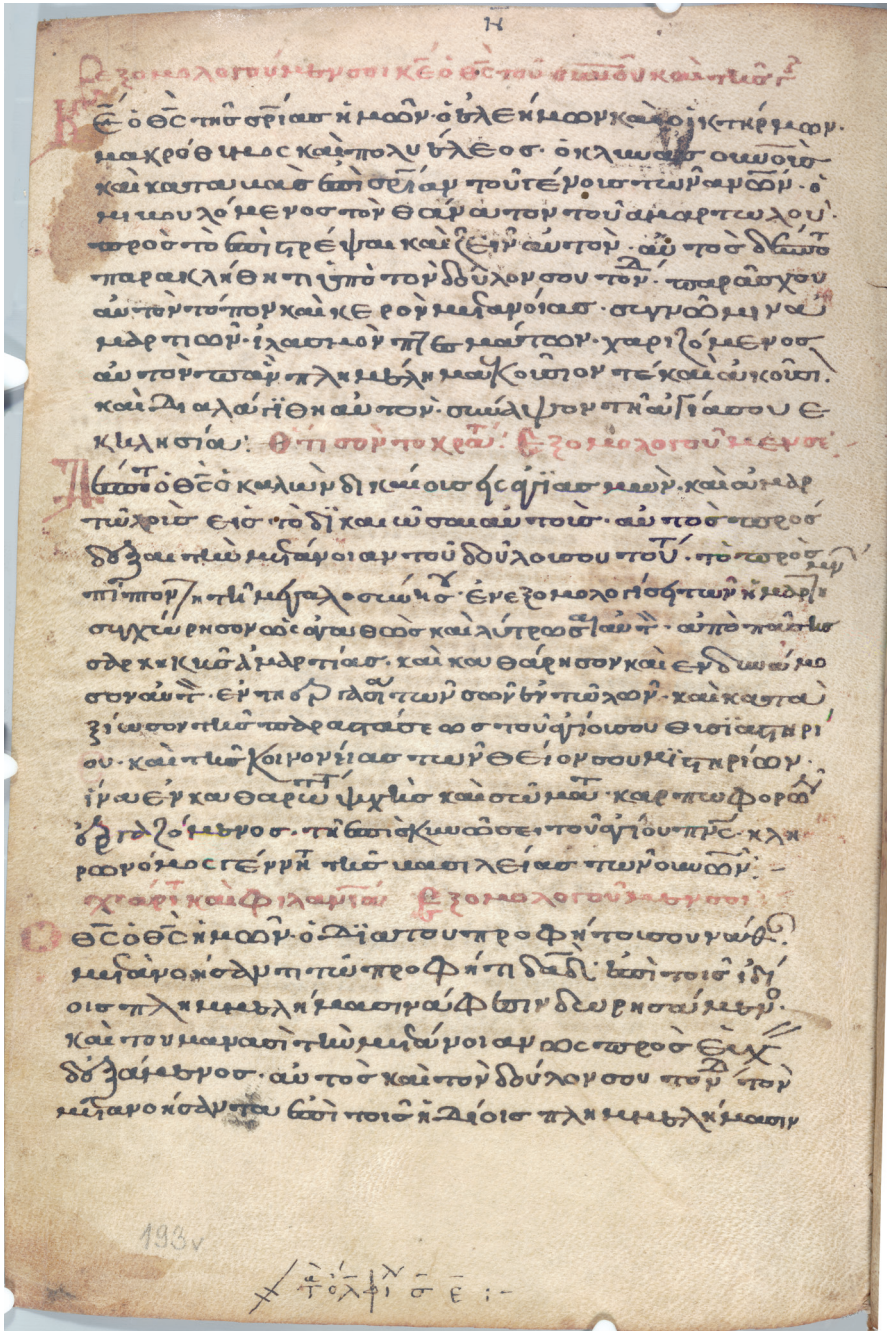 η
ἐξομολογούμενος σοι κε ὁ θς τοῦ
κε ὁ θς τῆς σριας ἡμῶν· ὁ ελεήμων καὶ οἰκτηρμων·
μακρόθιμος καὶ πολυέλεος· ὁ κλίνας οὐνοὺς
καὶ καταβὰς ἐπὶ σρίαν τοῦ γένοις τῶν ἀνῶν· ὁ
μὶ βουλόμενος τὸν θάνατον τοῦ ἁμαρτωλοῦ·
πρὸς τὸ ἐπιστρέψαι καὶ ζεῖν αὐτὸν· αὐτὸς
παρακλήθητι ἐπὶ τὸν δοῦλον σου τὸν δ· παράσχου
αὐτὸν τόπον καὶ κερὸν μετανοίας· συγνώμιν ἁ
μαρτιῶν· ἱλασμὸν πτεσμάτων· χαριζόμενος
αὐτὸν πᾶν πλημέλημα ἑκούσιον τὲ καὶ ἀκούσι
καὶ διαλάγιθη αὐτὸν· σινάψον τῇ ἁγία σου ε
κλησία: Ὅτι σὸν το κρα: Ἐξομολογούμενς
ὁ θς ὁ καλῶν δικαίοις εἰς ἁγιασμὸν· καὶ ἁμαρ
τωλοὶς εἰς τὸ δικαιῶσαι αὐτοὶς· αὐτὸς πρόσ
δεξαι τὴν μετάνοιαν τοῦ δούλοι σου τοῦ· τὸ προσ
πίπτον τῇ μεγαλοσύνης· ἐν ἐξομολογίσει τῶν ἡμαρ
συγχώρησον ὡς ἀγαθὸς καὶ λύτρωσαι αὐτ· ἀπὸ πάσης
σαρκηκῆς ἁμαρτίας· καὶ καθάρησον καὶ ἐνδινάμο
σον αὐτ· ἐν τῇ ἐργασία τῶν σῶν ἐντωλῶν· καὶ κατα
ξίωσον τῆς παραστάσεως τοῦ ἁγίοι σου θισιαστηρί
ου· καὶ τῆς κοινονίας τῶν θείον σου μιστηρίων·
ἵνα ἐν καθαρώτητι ψχῆς καὶ σώματ· καρπωφορῶν
ἐργαζόμενος· τῇ ἐπισκινώσει τοῦ ἁγίου πνς· κλη
ρωνόμος γέννητ τῆς βασιλείας τῶν οὐνῶν:
χάριτ καὶ φιλανία Ἐξομολογούμενσοι
Θς ὁ θς ἡμῶν· ὁ διὰ του προφήτοι σου νάθ
μετανοήσαντι τῶ προφήτι δαδ· ἐπὶ τοῖς ἰδί
οις πλημμελήμασιν ἄφεσιν δωρησάμεν·
καὶ του μανασὶ τὴν μετάνοιαν ὡς προσευχ
δεξάμενος· αὐτὸς καὶ τὸν δούλον σου τὸν δ τὸν
μετανοήσαντα ἐπὶ τοις ἠδίοις πλημμελήμασιν
193v